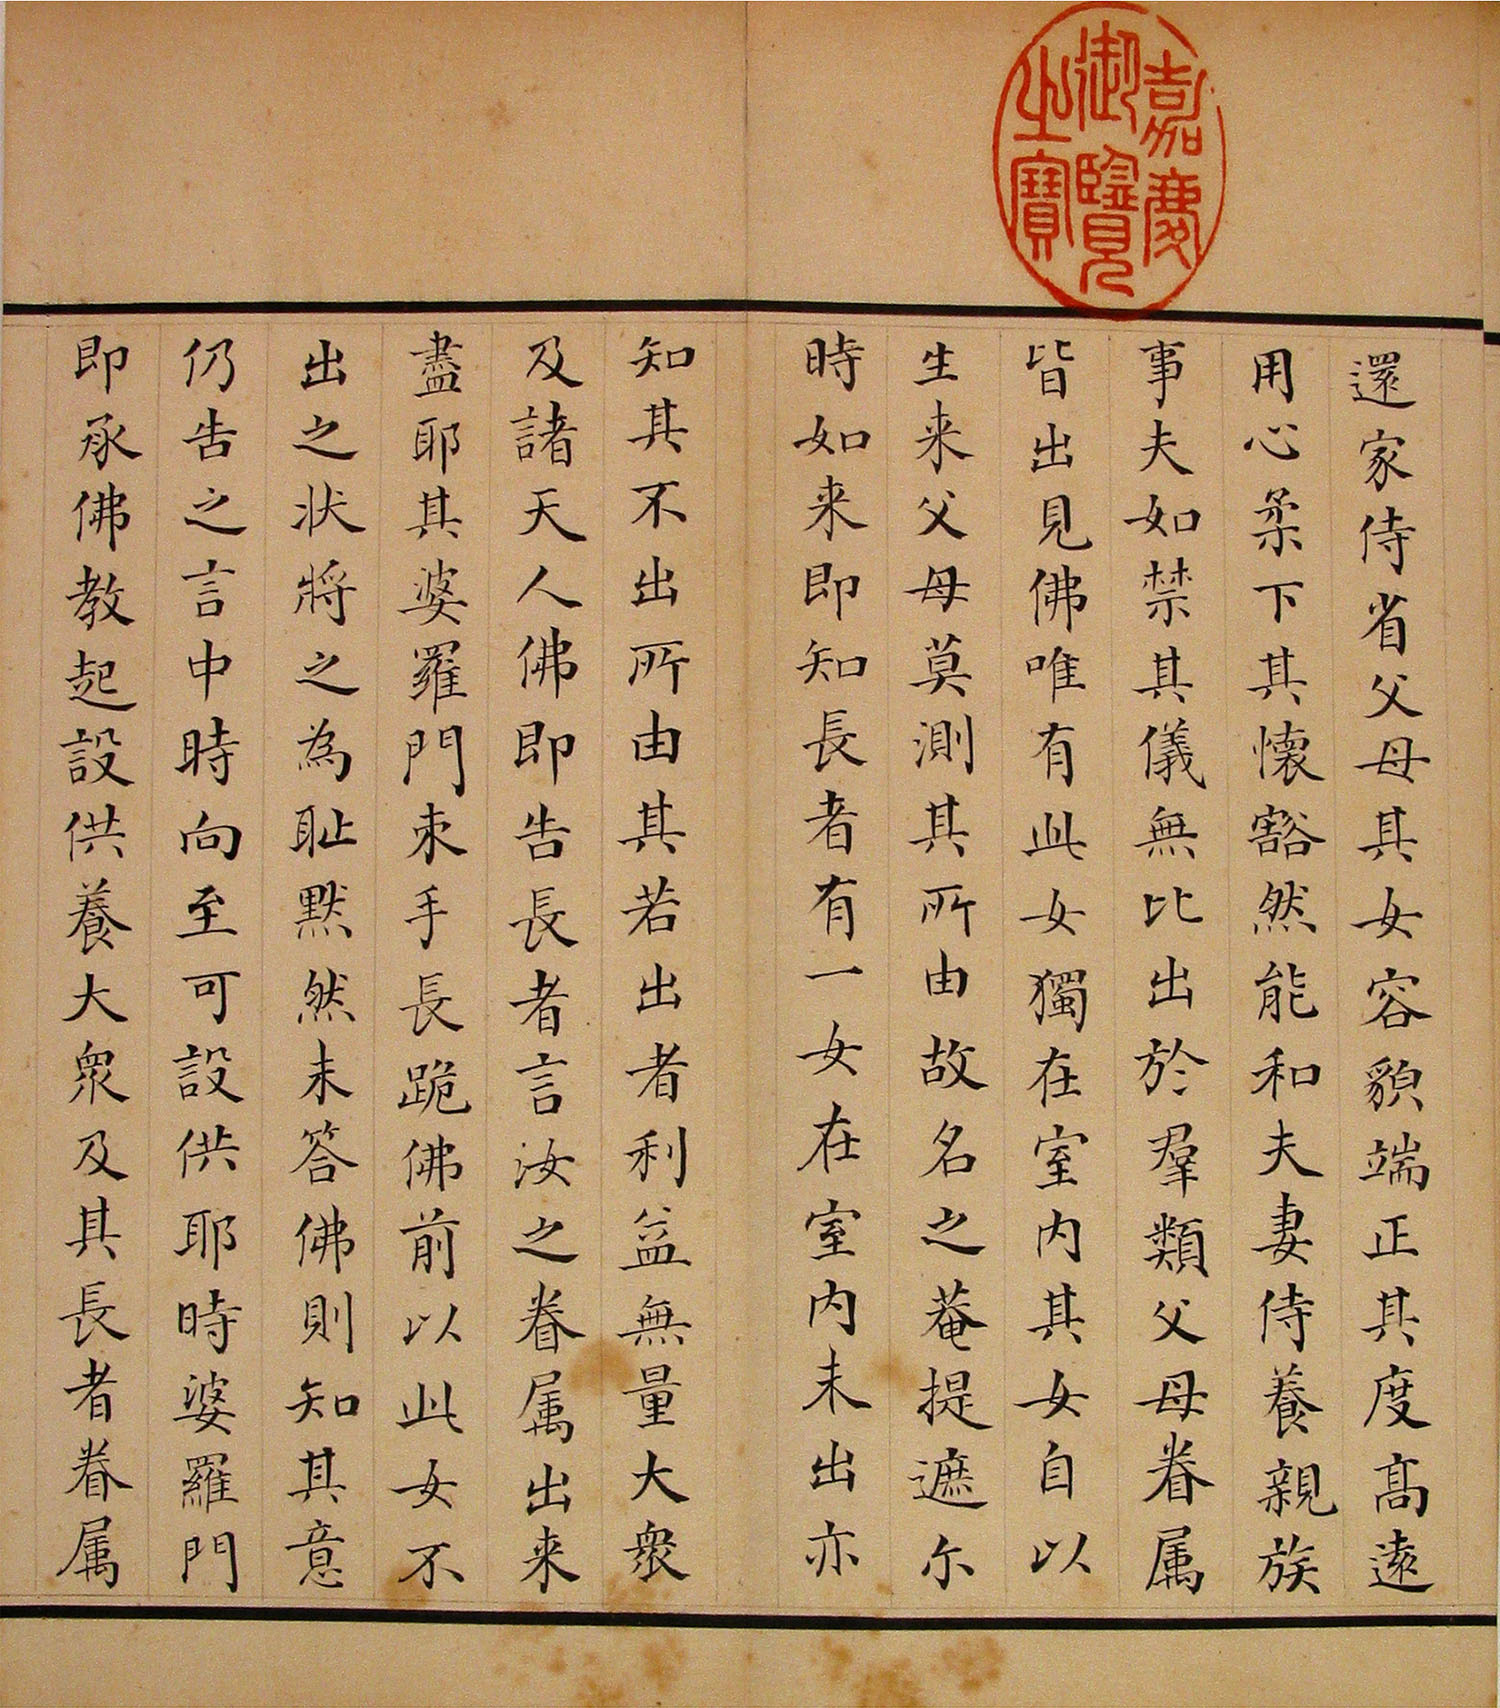 嘉慶
御覽
之寶
還家侍省父母其女容貌端正其度高遠
用心柔下其懐豁然能和夫妻侍養親族
事夫如禁其儀無比出於羣類父母眷属
皆出見佛唯有此女獨在室内其女自以
生来父母莫測其所由故名之菴提遮尓
時如来即知長者有一女在室内未出亦
知其不出所由其若出者利益無量大衆
及諸天人佛即告長者言汝之眷属出来
盡耶其婆羅門束手長跪佛前以此女不
出之状將之為耻默然未答佛則知其意
仍告之言中時向至可設供耶時婆羅門
即承佛教起設供養大衆及其長者眷属